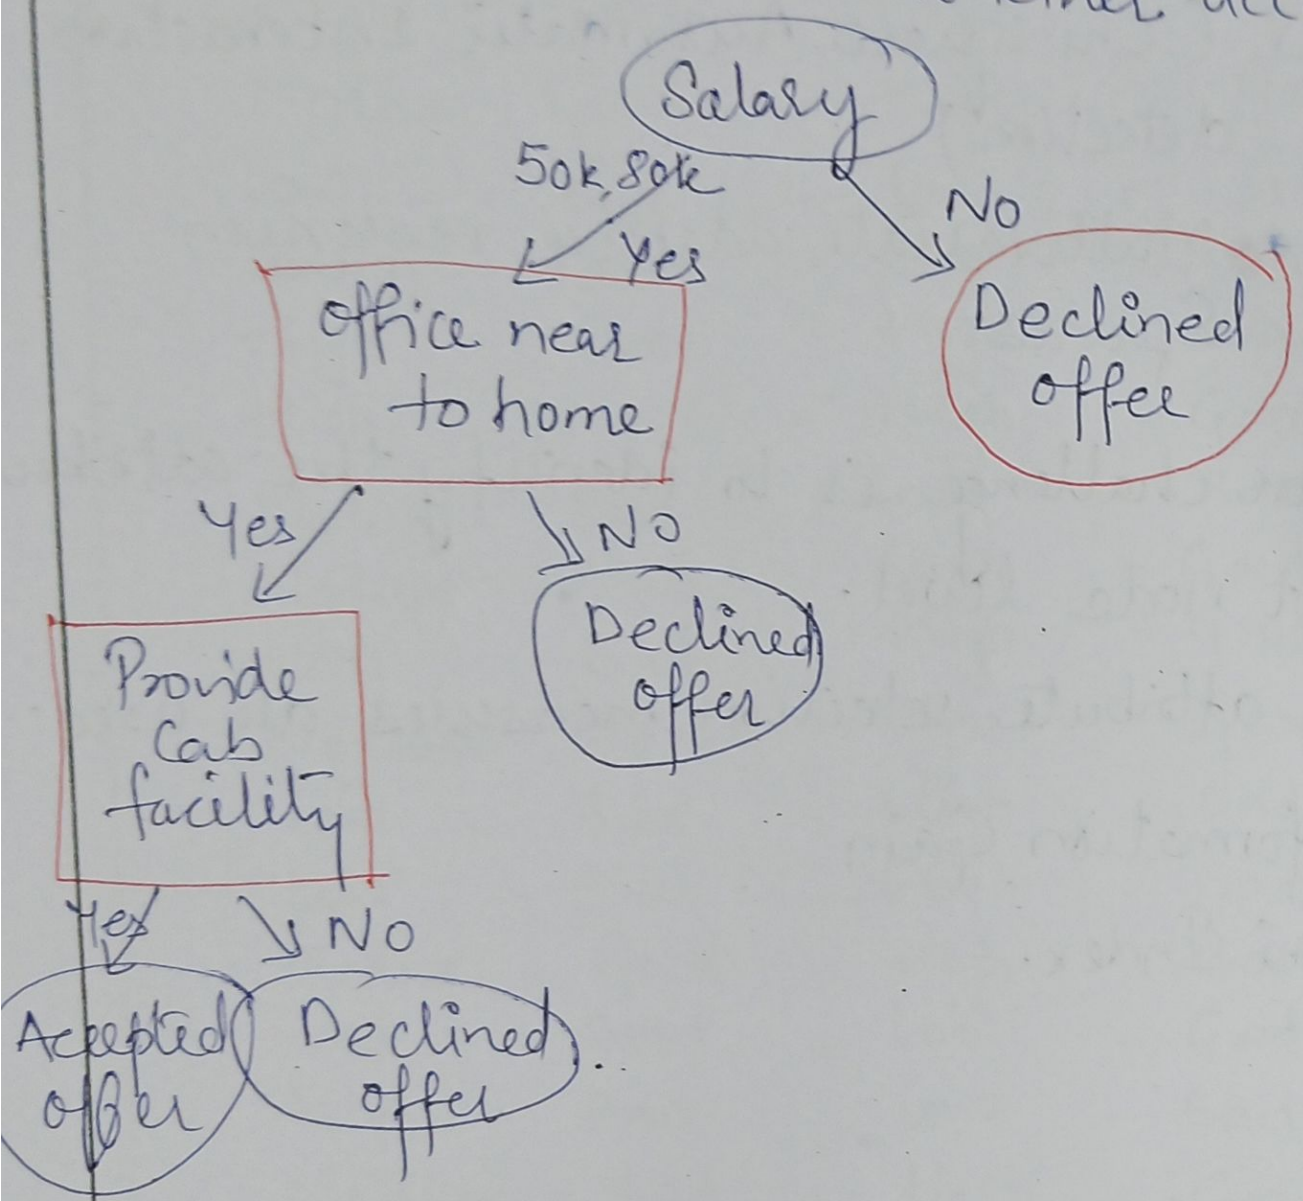 Salary
50k, 80k
Yes
No
Office near
to home
Declined
offer
Yes
No
Provide
Cab
facility
Declined
offer
Yes
No
Accepted
offer
Declined
offer